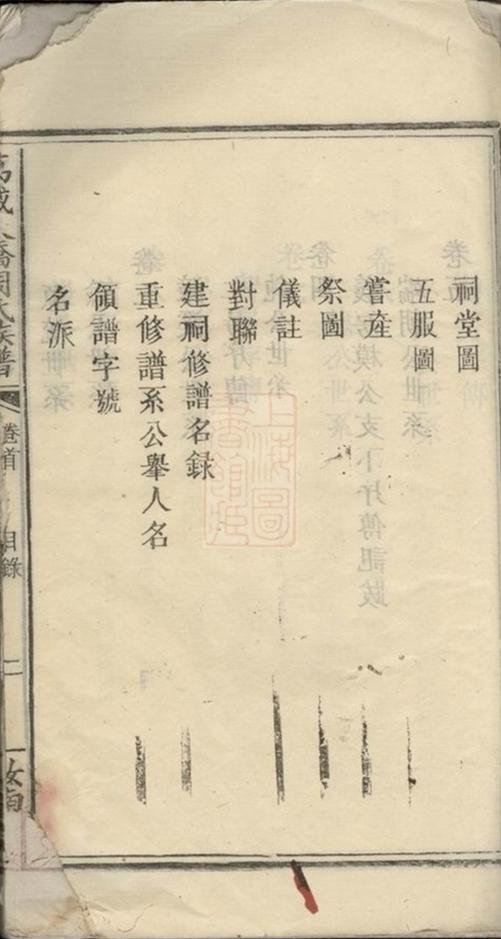 祠堂圖
五服圖
嘗產
祭圖
儀註
對聯
建祠修譜名録
重修譜系公舉人名
領譜字號
名派
氏族譜
卷首
目錄
二
上海圖書館藏